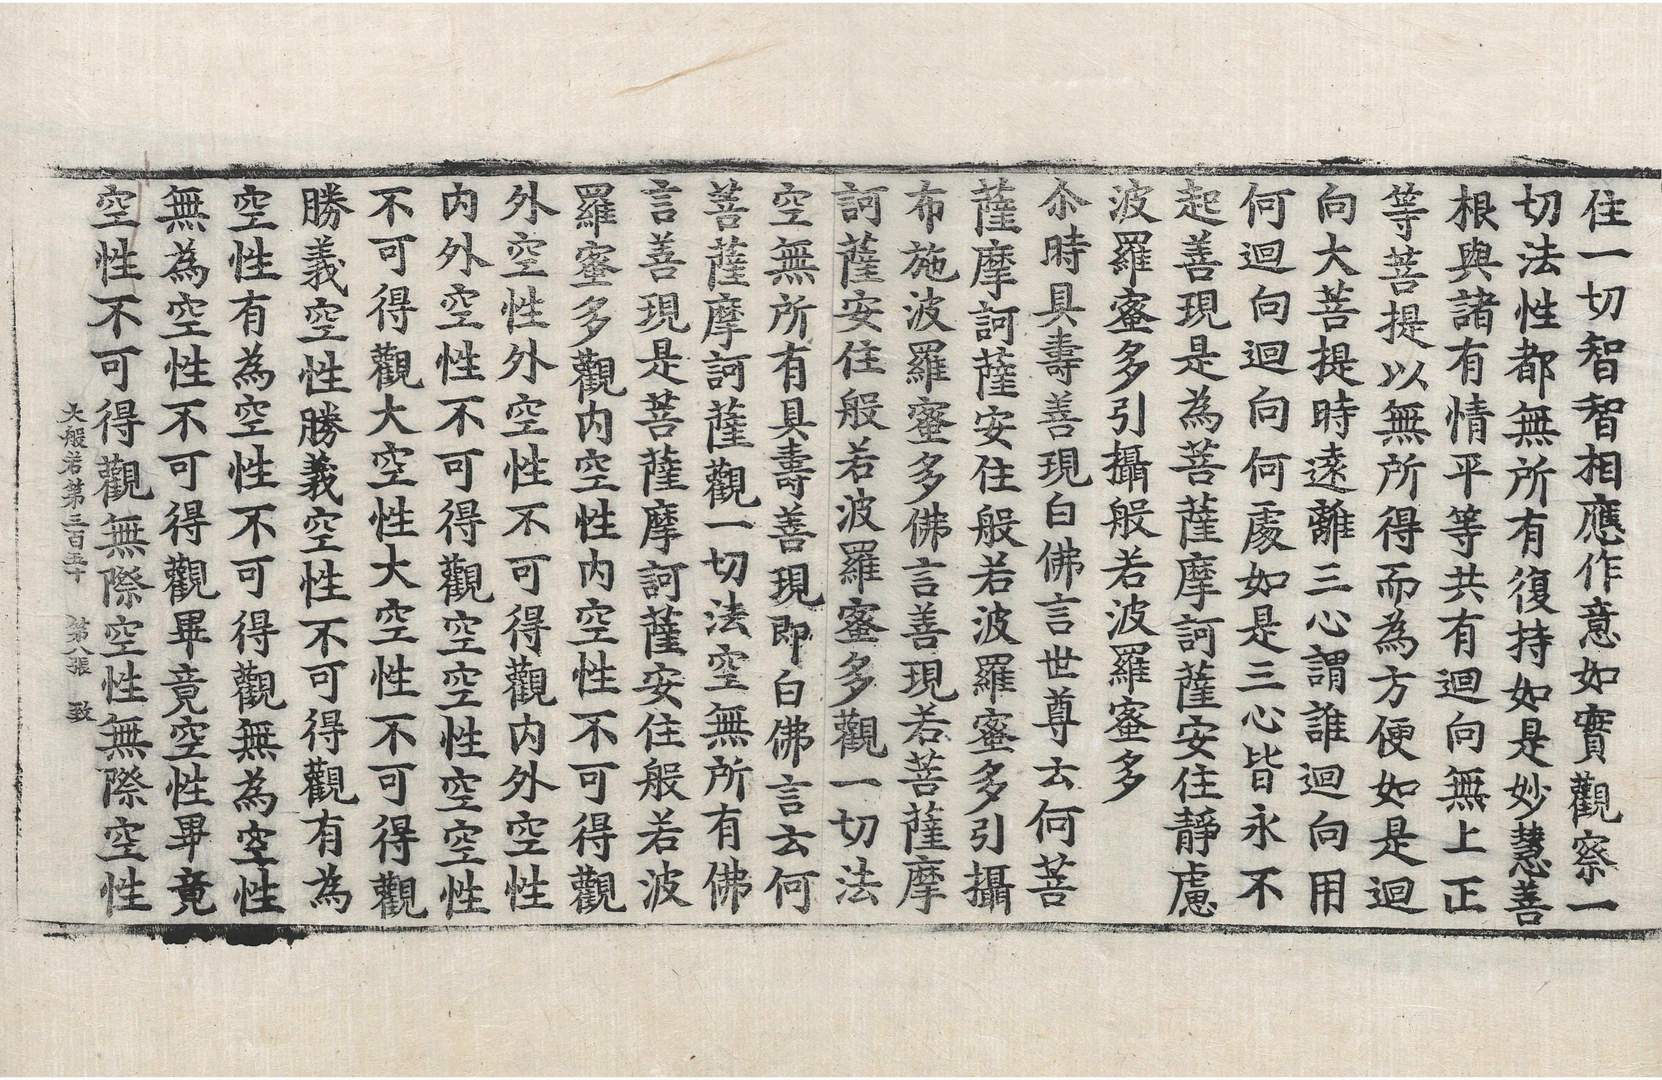 住一切智智相應作意如實觀察一
切法性都無所有復持如是妙慧善
根與諸有情平等共有迴向無上正
等菩提以無所得而為方便如是迴
向大菩提時遠離三心謂誰迴向用
何迴向迴向何處如是三心皆永不
起善現是為菩薩摩訶薩安住靜慮
波羅蜜多引攝般若波羅蜜多
尒時具壽善現白佛言世尊云何菩
薩摩訶薩安住般若波羅蜜多引攝
布施波羅蜜多佛言善現若菩薩摩
訶薩安住般若波羅蜜多觀一切法
空無所有具壽善現即白佛言云何
菩薩摩訶薩觀一切法空無所有佛
言善現是菩薩摩訶薩安住般若波
羅蜜多觀内空性内空性不可得觀
外空性外空性不可得觀内外空性
内外空性不可得觀空空性空空性
不可得觀大空性大空性不可得觀
勝義空性勝義空性不可得觀有為
空性有為空性不可得觀無為空性
無為空性不可得觀畢竟空性畢竟
空性不可得觀無際空性無際空性
大般若第三百五十 第八張 致